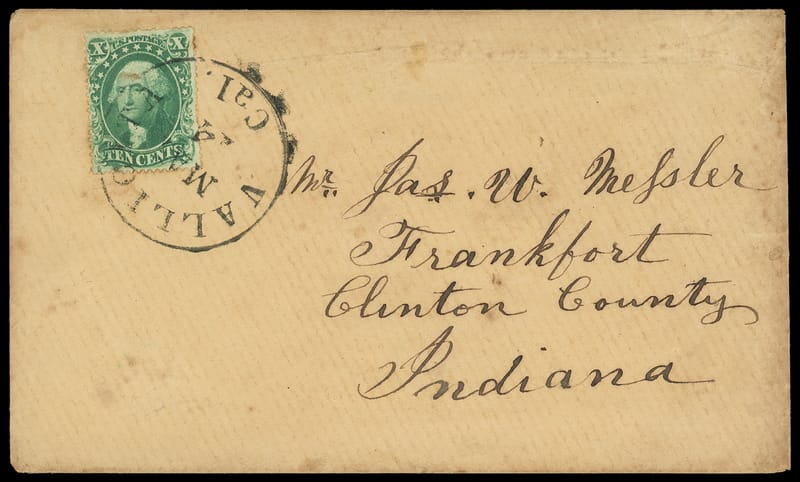 X U.S. POSTAGE X
TEN CENTS
Cal.
Mr. Jas. W. Meſsler
Frankfort
Clinton County
Indiana